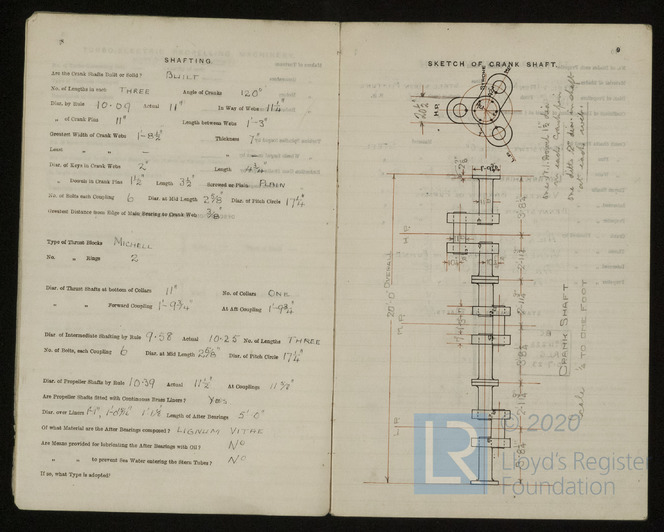 SHAFTING.
Are the Crank Shafts Built or Solid? BUILT
No. of Lengths in each THREE Angle of Cranks 120°
Diar. by Rule 10.09 Actual 11" In Way of Webs 11¼"
„ of Crank Pins 11" Length between Webs 1'-3"
Greatest Width of Crank Webs 1'-8½" Thickness 7"
Least „ „ — „ —
Diar. of Keys in Crank Webs 2" Length 4¾"
„ Dowels in Crank Pins 1½" Length 3½" Screwed or Plain PLAIN
No. of Bolts each Coupling 6 Diar. at Mid Length 2⅝" Diar. of Pitch Circle 17¼"
Greatest Distance from Edge of Main Bearing to Crank Web 3/8"
Type of Thrust Blocks MICHELL
No. „ Rings 2
Diar. of Thrust Shafts at bottom of Collars 11" No. of Collars ONE
„ „ Forward Coupling 1'-9¾" At Aft Coupling 1'-9¾"
Diar. of Intermediate Shafting by Rule 9.58 Actual 10.25 No. of Lengths THREE
No. of Bolts, each Coupling 6 Diar. at Mid Length 2⅝" Diar. of Pitch Circle 17¼"
Diar. of Propeller Shafts by Rule 10.39 Actual 11½" At Couplings 11½"
Are Propeller Shafts fitted with Continuous Brass Liners? YES
Diar. over Liners 1'-1", 1'-1½" Length of After Bearings 5'-0"
Of what Material are the After Bearings composed? LIGNUM VITAE
Are Means provided for lubricating the After Bearings with Oil? NO
„ „ to prevent Sea Water entering the Stern Tubes? NO
If so, what Type is adopted?
9
SKETCH OF CRANK SHAFT.
20½"
H.P.
M.P.
L.P.
20'-0" OVERALL
CRANK SHAFT
Scale ⅛ TO ONE FOOT
© 2020
LR
Lloyd's Register
Foundation